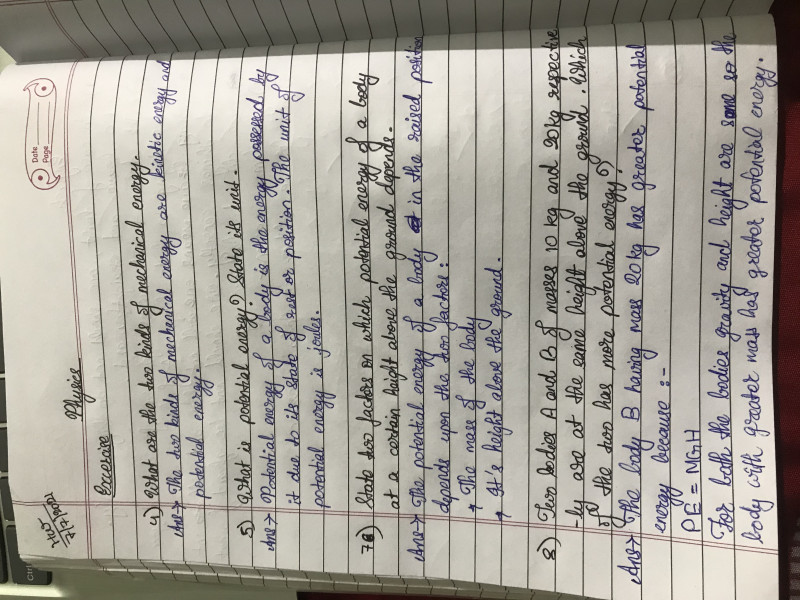 Date
Page
HW
3/7/2021
Physics
Excercise
4) What are the two kinds of mechanical energy.
Ans→ The two kinds of mechanical energy are kinetic energy and
potential energy.
5) What is potential energy? State its unit.
Ans→ Potential energy of a body is the energy possessed by
it due to its state of rest or position. The unit of
potential energy is joules.
7) State two factors on which potential energy of a body
at a certain height above the ground depends.
Ans→ The potential energy of a body in the raised position
depends upon the two factors:
* The mass of the body
* It's height above the ground.
8) Two bodies A and B of masses 10 kg and 20 kg respective
-ly are at the same height above the ground. Which
of the two has more potential energy?
Ans→ The body B having mass 20kg has greater potential
energy because :-
PE = MGH
For both the bodies gravity and height are same so the
body with greater mass has greater potential energy.
Ctrl